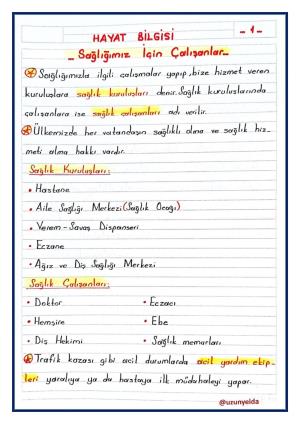 HAYAT BİLGİSİ
- 1 -
- Sağlığımız İçin Çalışanlar -
Sağlığımızla ilgili çalışmalar yapıp, bize hizmet veren
kuruluşlara sağlık kuruluşları denir. Sağlık kuruluşlarında
çalışanlara ise sağlık çalışanları adı verilir.
Ülkemizde her vatandaşın sağlıklı olma ve sağlık hiz-
meti alma hakkı vardır.
Sağlık Kuruluşları:
• Hastane
• Aile Sağlığı Merkezi (Sağlık Ocağı)
• Verem - Savaş Dispanseri
• Eczane
• Ağız ve Diş Sağlığı Merkezi
Sağlık Çalışanları:
• Doktor • Eczacı
• Hemşire • Ebe
• Diş Hekimi • Sağlık memurları
Trafik kazası gibi acil durumlarda acil yardım ekip-
leri yaralıya ya da hastaya ilk müdahaleyi yapar.
@uzunyelda